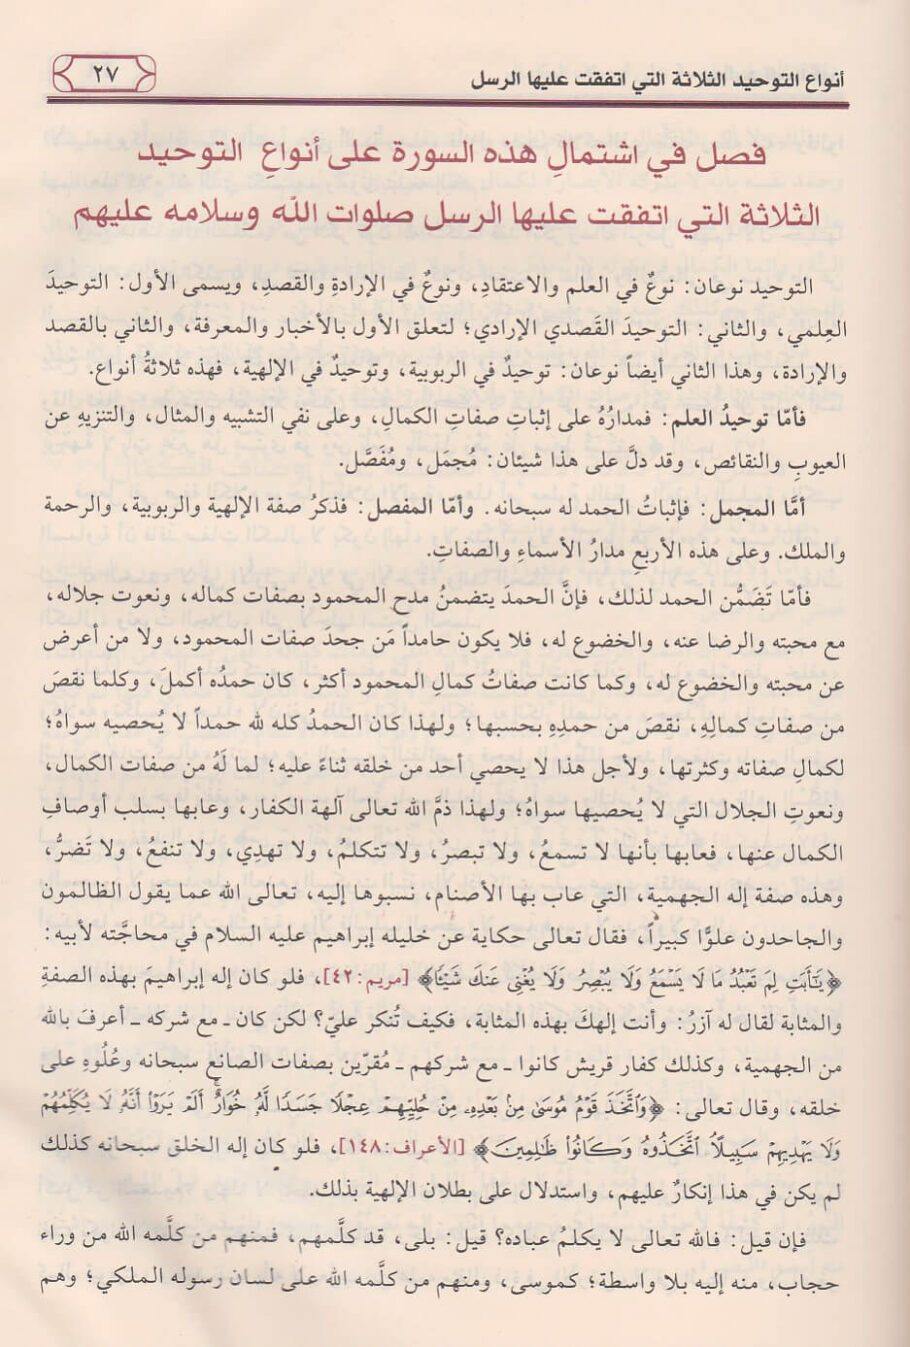 أنواع التوحيد الثلاثة التي اتفقت عليها الرسل
٢٧
فصل في اشتمالِ هذه السورة على أنواعِ التوحيد
الثلاثة التي اتفقت عليها الرسل صلوات الله وسلامه عليهم
التوحيد نوعان: نوعٌ في العلم والاعتقادِ، ونوعٌ في الإرادةِ والقصدِ، ويسمى الأول: التوحيدَ
العِلمي، والثاني: التوحيدَ القَصدي الإرادي؛ لتعلق الأول بالأخبار والمعرفة، والثاني بالقصد
والإرادة، وهذا الثاني أيضاً نوعان: توحيدٌ في الربوبية، وتوحيدٌ في الإلهية، فهذه ثلاثةُ أنواع.
فأمّا توحيدُ العلم: فمدارُهُ على إثباتِ صفاتِ الكمالِ، وعلى نفي التشبيه والمثال، والتنزيهِ عن
العيوبِ والنقائص، وقد دلَّ على هذا شيئان: مُجمَل، ومُفَصَّل.
أمَّا المجمل: فإثباتُ الحمد له سبحانه. وأمّا المفصل: فذكرُ صفة الإلهية والربوبية، والرحمة
والملك. وعلى هذه الأربعِ مدارُ الأسماءِ والصفاتِ.
فأمّا تَضَمُّن الحمد لذلك، فإنَّ الحمدَ يتضمنُ مدح المحمود بصفات كماله، ونعوت جلاله،
مع محبته والرضا عنه، والخضوع له، فلا يكون حامداً مَن جحدَ صفات المحمود، ولا من أعرض
عن محبته والخضوع له، وكما كانت صفاتُ كمالِ المحمود أكثر، كان حمدُه أكملَ، وكلما نقصَ
من صفاتِ كمالِهِ، نقصَ من حمدِهِ بحسبها؛ ولهذا كان الحمدُ كله لله حمداً لا يُحصيه سواهُ؛
لكمالِ صفاته وكثرتها، ولأجل هذا لا يحصي أحد من خلقه ثناءً عليه؛ لما لَهُ من صفات الكمال،
ونعوتِ الجلال التي لا يُحصيها سواهُ؛ ولهذا ذمَّ الله تعالى آلهة الكفار، وعابها بسلب أوصافِ
الكمال عنها، فعابها بأنها لا تسمعُ، ولا تبصرُ، ولا تتكلمُ، ولا تهدِي، ولا تنفعُ، ولا تَضرُّ،
وهذه صفة إله الجهمية، التي عاب بها الأصنام، نسبوها إليه، تعالى الله عما يقول الظالمون
والجاحدون علوًّا كبيراً، فقال تعالى حكاية عن خليله إبراهيم عليه السلام في محاجَّته لأبيه:
﴿يَـٰٓأَبَتِ لِمَ تَعْبُدُ مَا لَا يَسْمَعُ وَلَا يُبْصِرُ وَلَا يُغْنِى عَنكَ شَيْـًٔا﴾ [مريم:٤٢]، فلو كان إله إبراهيمَ بهذه الصفةِ
والمثابة لقال له آزرُ: وأنت إلهكَ بهذه المثابة، فكيف تُنكر عليّ؟ لكن كان ـ مع شركه ـ أعرفَ بالله
من الجهمية، وكذلك كفار قريش كانوا ـ مع شركهم ـ مُقرّين بصفات الصانع سبحانه وعُلُوهِ على
خلقه، وقال تعالى: ﴿وَٱتَّخَذَ قَوْمُ مُوسَىٰ مِنۢ بَعْدِهِۦ مِنْ حُلِيِّهِمْ عِجْلًا جَسَدًا لَّهُۥ خُوَارٌ أَلَمْ يَرَوْا۟ أَنَّهُۥ لَا يُكَلِّمُهُمْ
وَلَا يَهْدِيهِمْ سَبِيلًا ٱتَّخَذُوهُ وَكَانُوا۟ ظَـٰلِمِينَ﴾ [الأعراف:١٤٨]، فلو كان إله الخلق سبحانه كذلك
لم يكن في هذا إنكارٌ عليهم، واستدلال على بطلان الإلهية بذلك.
فإن قيل: فالله تعالى لا يكلمُ عباده؟ قيل: بلى، قد كلَّمهم، فمنهم من كلَّمه الله من وراء
حجاب، منه إليه بلا واسطة؛ كموسى، ومنهم من كلَّمه الله على لسان رسوله الملكي؛ وهم